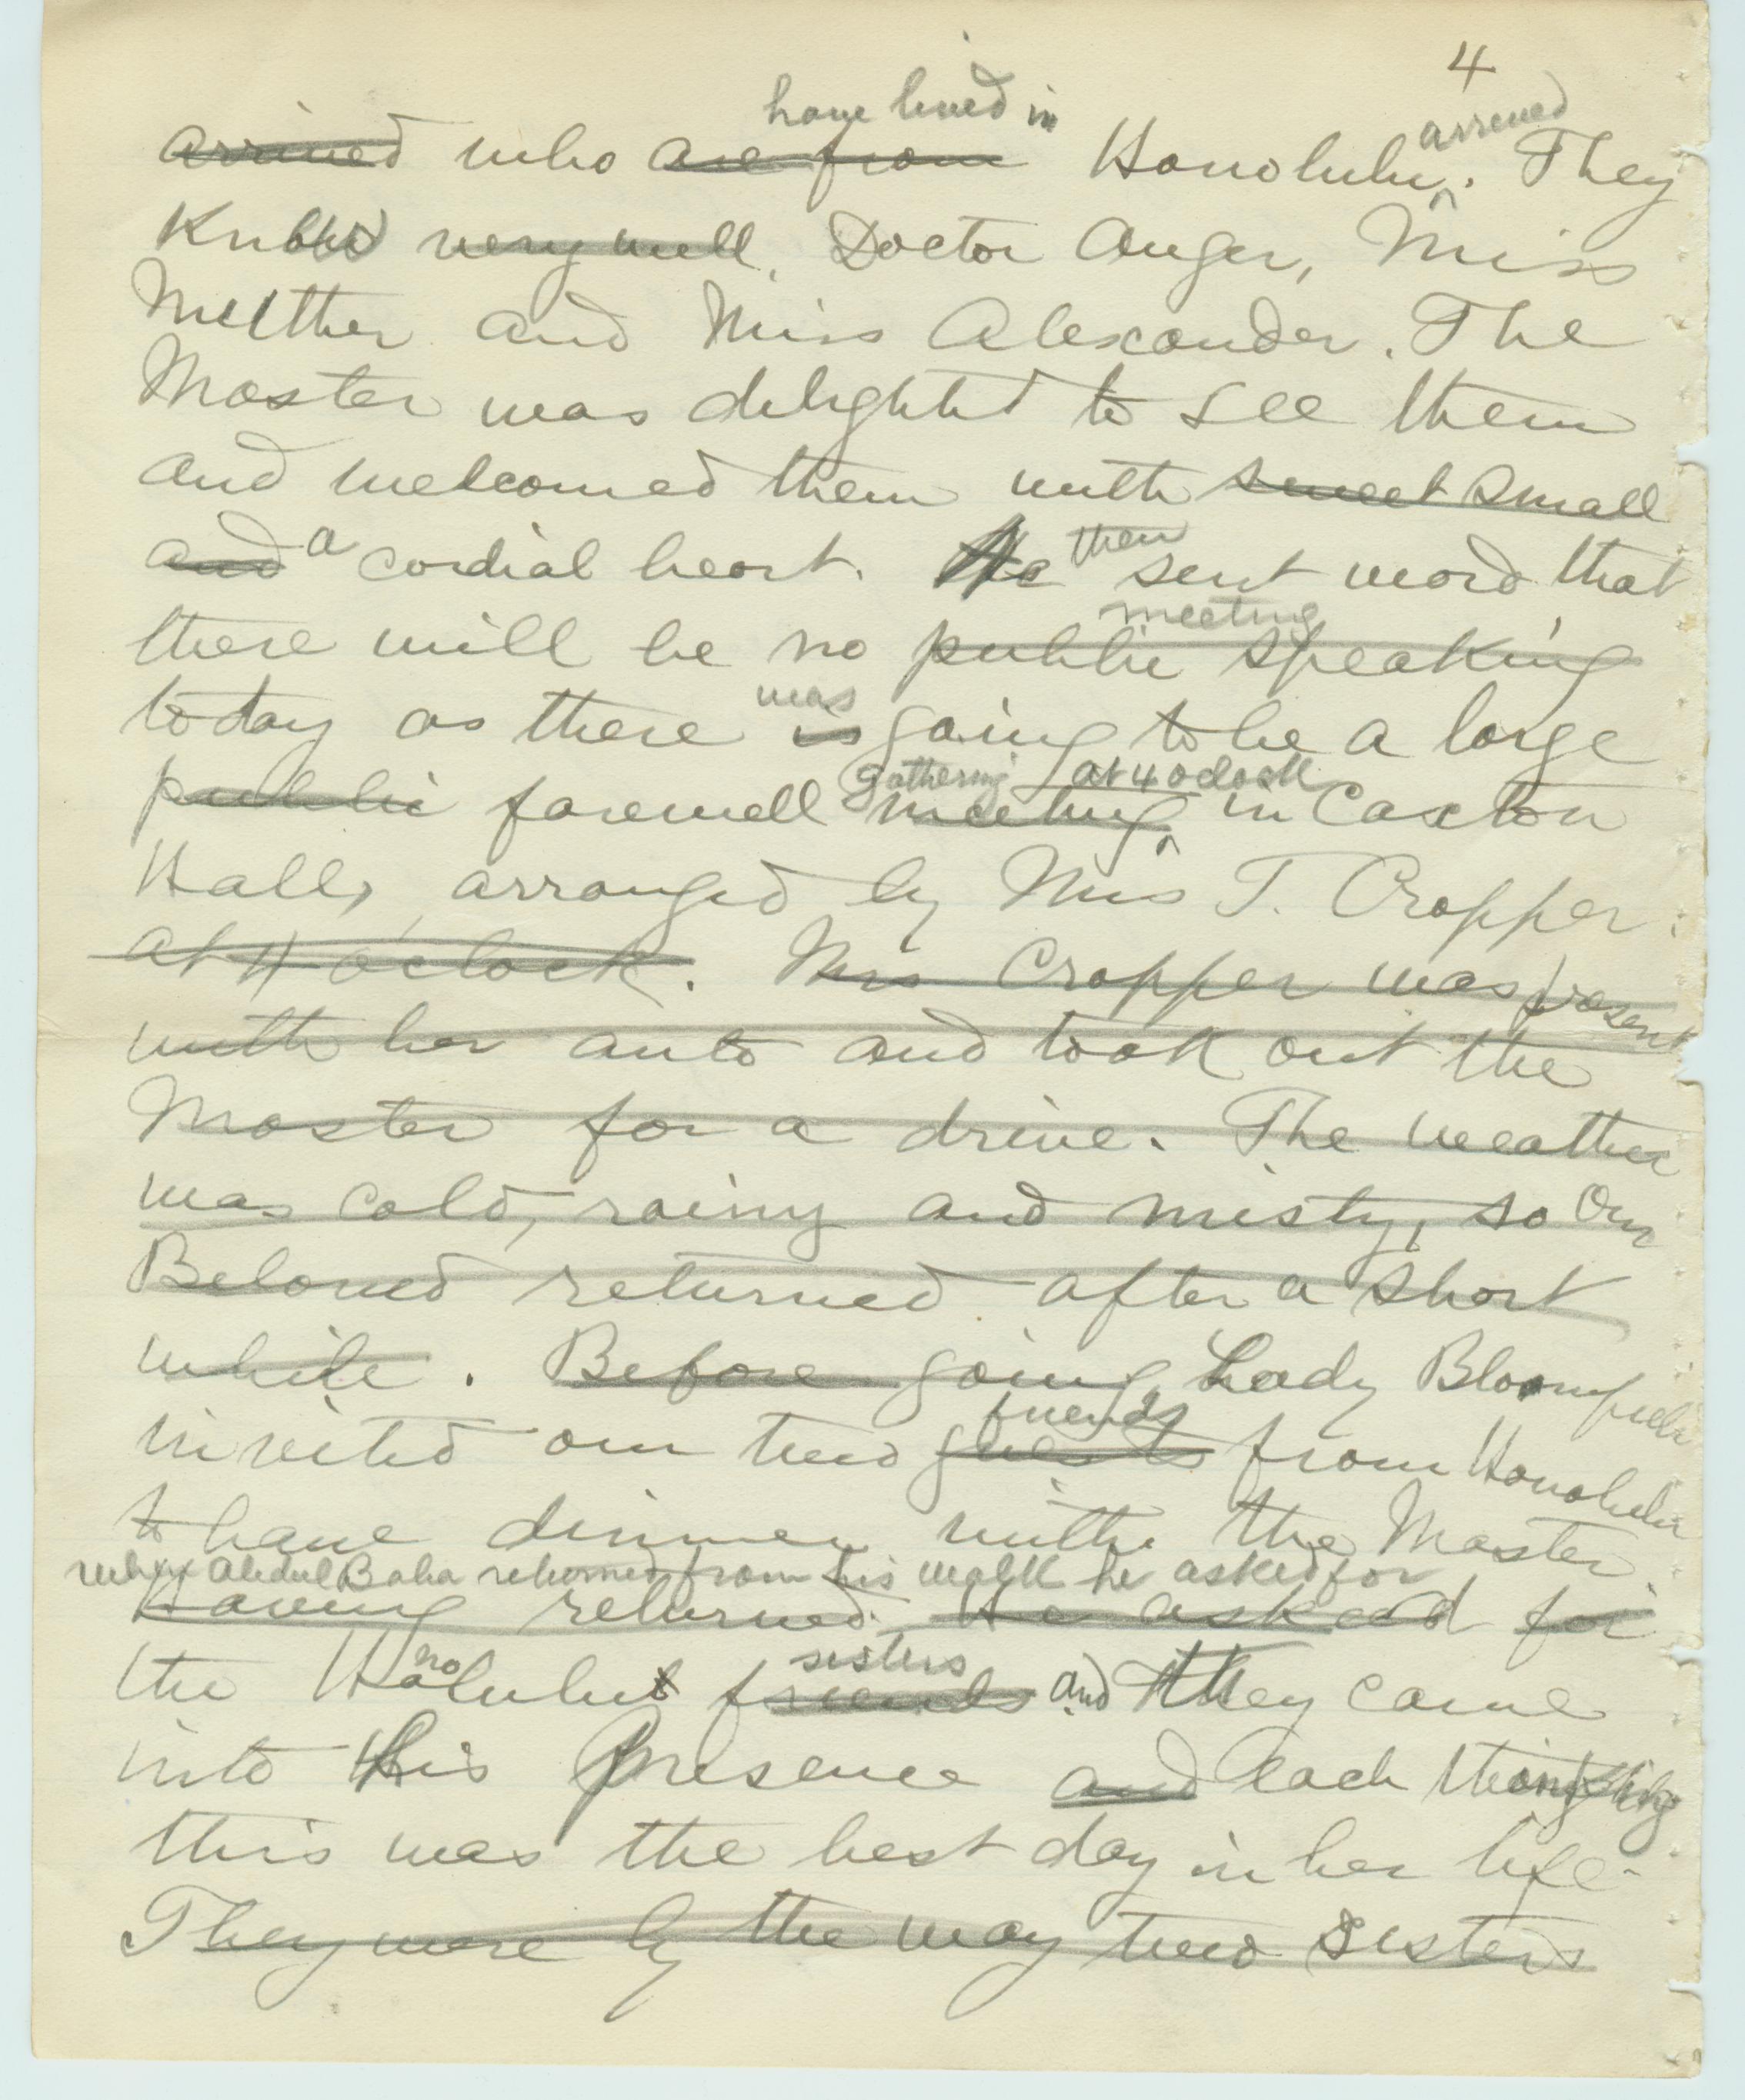 4
have lived in arrived
arrived who are from Honolulu. They
Know very well, Doctor Auger, Miss
Muther and Miss Alexander. The
Master was delighted to see them
and welcomed them with sweet small
and a cordial heart. He then sent word that
meeting
there will be no public speaking
was
today as there is going to be a large
gathering at 4 oclock
public farewell meeting in Caxton
Hall, arranged by Mrs T. Cropper.
at 4 o'clock. Mrs Cropper was present
with her auto and took out the
Master for a drive. The weather
was cold, rainy and misty, so Our
Beloved returned after a short
while. Before going, Lady Bloomfield
friends
invited our two guests from Honolulu
to have dinner with the Master
when Abdul Baha returned from his walk he asked for
Having returned He asked for
sisters
the Honolulu friends and they came
into His Presence and each thinking
this was the best day in her life.
They were by the way two sisters